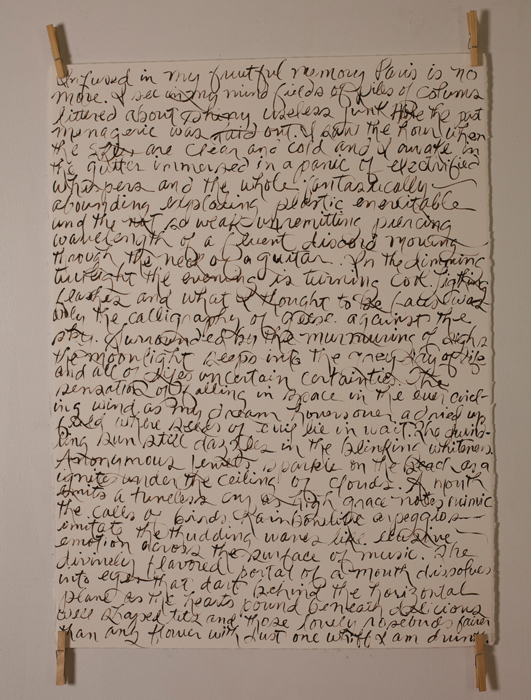 Infused in my fruitful memory Paris is no
more. I see in my mind fields of piles of columns
littered about useless junk the past
menagerie was laid out. I saw the hour when
the skies are clear and cold and I awake in
the gutter immersed in a panic of electrified
whispers and the whole fantastically
abounding exploding plastic inevitable
and the not so weak unremitting piercing
wavelength of a fluent discord moving
through the neck of a guitar. In the dimming
twilight the evening is turning cold. Lightning
flashes and what I thought to be was
only the calligraphy of geese against the
sky. Surrounded by the murmuring of
the moonlight seeps into the grey of life
and all of life's uncertain certainties. The
sensation of falling in space in the ever
ing wind as my dream hovers over a dried up
field where seeds of evil lie in wait. The
ing sun still dazzles in the blinking whiteness.
Anonymous jewels sparkle on the beach as a
ignites under the ceiling of clouds. A mouth
emits a tuneless cry as high grace notes mimic
the calls of birds. Rainbowlike arpeggios
imitate the thudding waves like
emotion across the surface of music. The
divinely flavored portal of a mouth dissolves
into eyes that dart behind the horizontal
plane as the hearts pound beneath delicious
well shaped tits and those lovely rosebuds fairer
than any flower with just one whiff I am